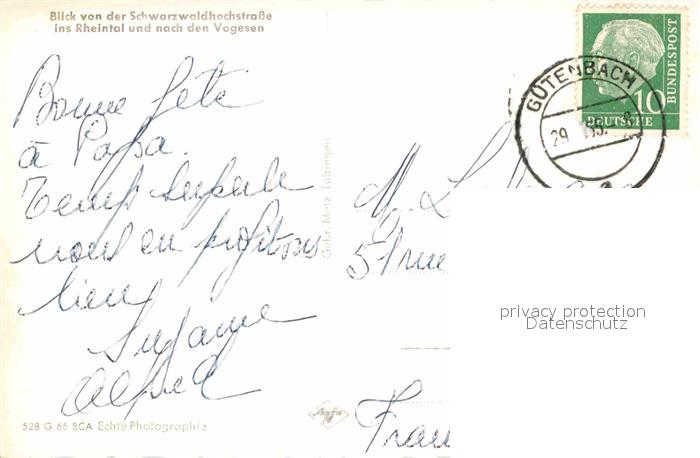 Blick von der Schwarzwaldhochstraße
ins Rheintal und nach den Vogesen
Bonne fête
à Papa.
Temps superbe
nous en profitons
bien
Suzanne
Alfred
528 G 66 BCA Echte Photographie
Gebr. Metz, Tübingen
Agfa
GÜTENBACH
29
10
DEUTSCHE
BUNDESPOST
M. L
51 rue
privacy protection
Datenschutz
Fran